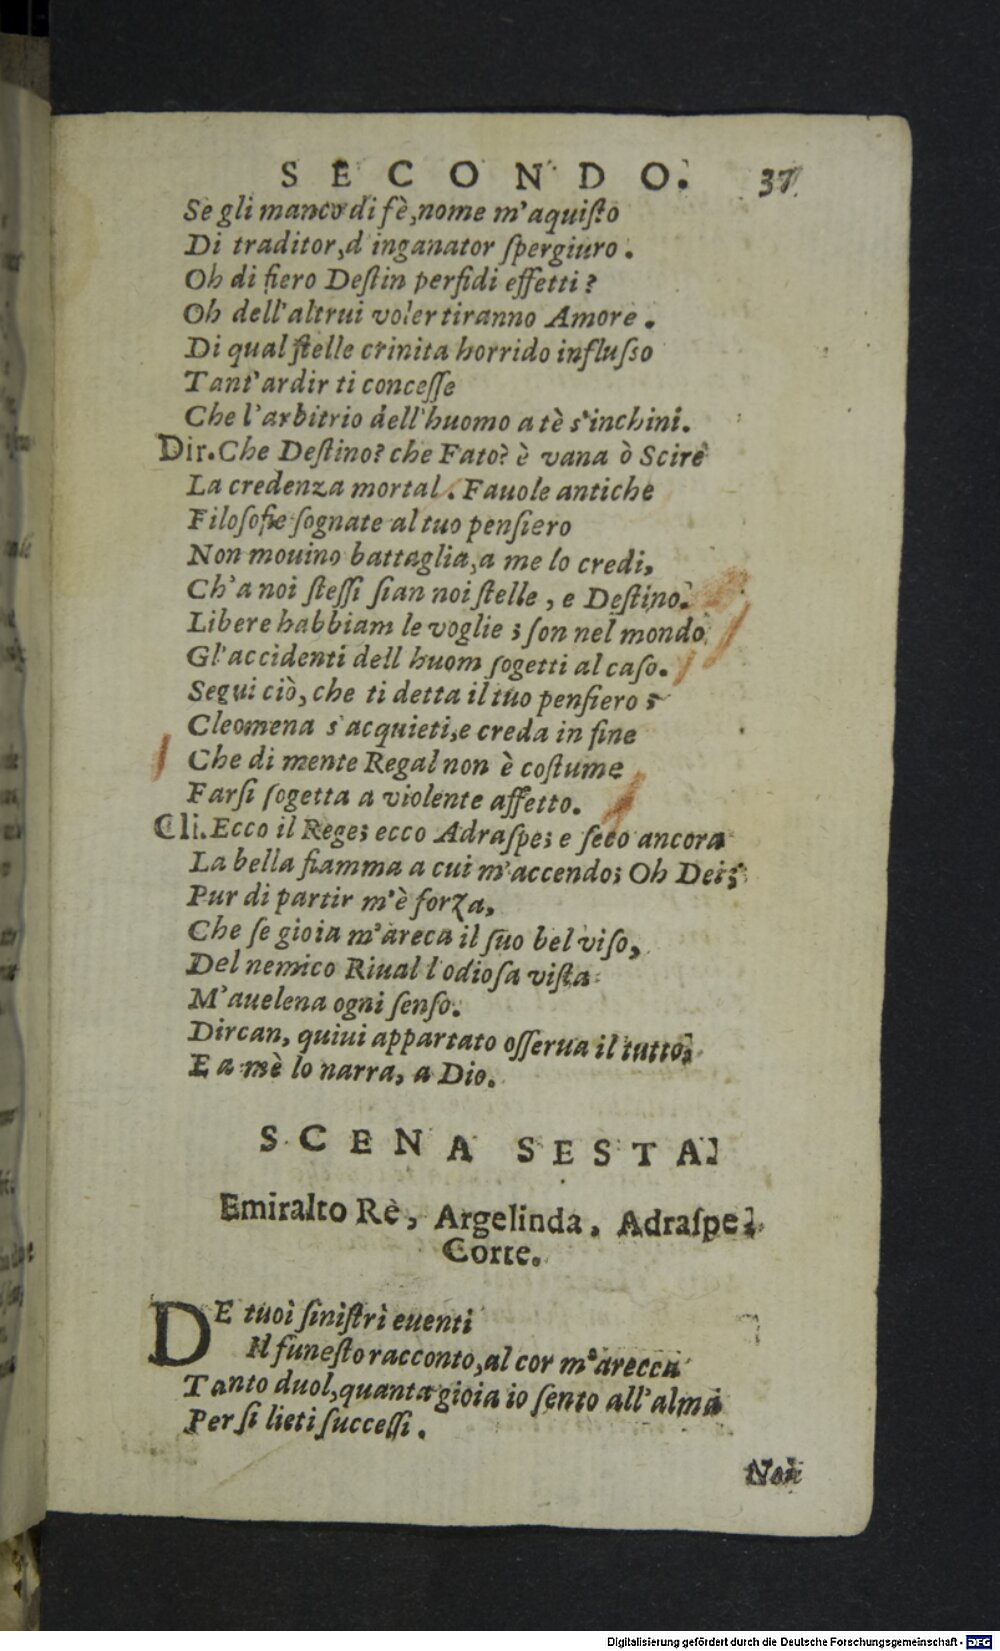 SECONDO. 37
Se gli manco di fè, nome m'aquiſto
Di traditor, d inganator ſpergiuro.
Oh di fiero Deſtin perfidi effetti?
Oh dell'altrui voler tiranno Amore.
Di qual ſtelle crinita horrido influſso
Tant'ardir ti conceſſe
Che l'arbitrio dell'huomo a tè s'inchini.
Dir. Che Deſtino? che Fato? è vana ò Scire
La credenza mortal. Fauole antiche
Filoſofie ſognate al tuo penſiero
Non mouino battaglia, a me lo credi,
Ch'a noi ſteſſi ſian noi ſtelle, e Deſtino.
Libere habbiam le voglie; ſon nel mondo
Gl'accidenti dell huom ſogetti al caſo.
Segui ciò, che ti detta il tuo penſiero;
Cleomena s'acquieti, e creda in fine
Che di mente Regal non è coſtume
Farſi ſogetta a violente affetto.
Cli. Ecco il Rege; ecco Adraſpe; e ſeco ancora
La bella fiamma a cui m'accendo; Oh Dei;
Pur di partir m'è forza,
Che ſe gioia m'areca il ſuo bel viſo,
Del nemico Riual l odioſa viſta
M'auelena ogni ſenſo.
Dircan, quiui appartato oſſerua il tutto,
E a mè lo narra, a Dio.
SCENA SESTA.
Emiralto Rè, Argelinda, Adraſpe.
Corte.
DE tuoi ſiniſtri euenti
Il funeſto racconto, al cor m'arecca
Tanto duol, quanta gioia io ſento all'alma
Per ſi lieti ſucceſſi.
Digitalisierung gefördert durch die Deutsche Forschungsgemeinschaft - DFG